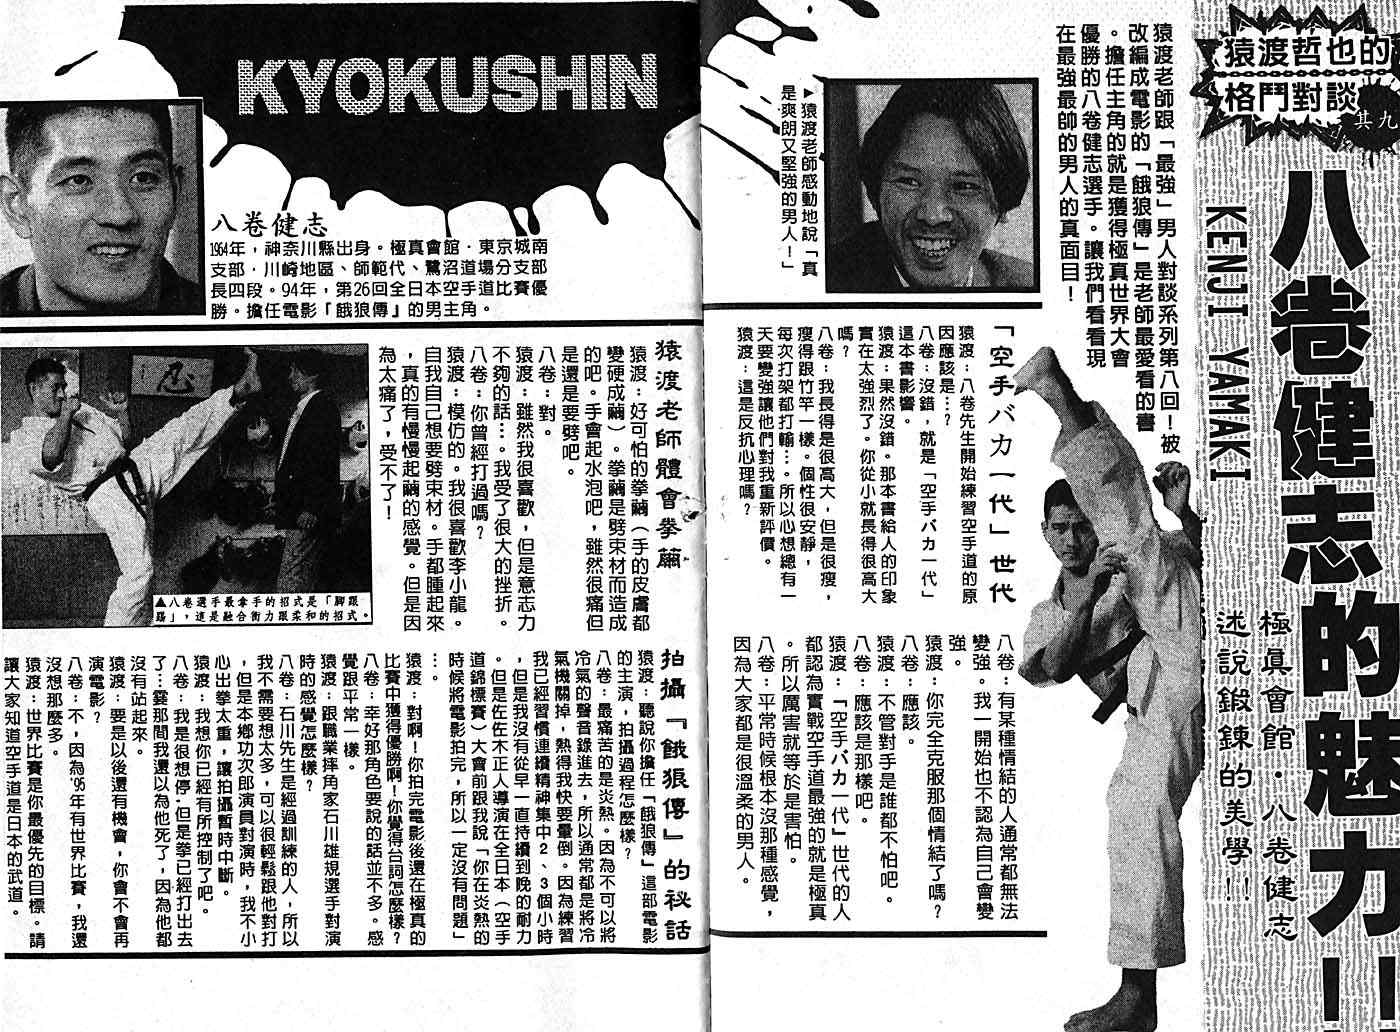 猿渡哲也的
格鬥對談
其九
八卷健志的魅力!!
KENJI YAMAKI
極真會館・八卷健志
述說鍛鍊的美學!!
猿渡老師跟「最強」男人對談系列第八回!被
改編成電影的「餓狼傳」是老師最愛看的書
。擔任主角的就是獲得極真世界大會
優勝的八卷健志選手。讓我們看看現
在最強最帥的男人的真面目!
▶猿渡老師感動地說「真
是爽朗又堅強的男人!」
「空手バカ一代」世代
猿渡:八卷先生開始練習空手道的原
因應該是…?
八卷:沒錯,就是「空手バカ一代」
這本書影響。
猿渡:果然沒錯。那本書給人的印象
實在太強烈了。你從小就長得很高大
嗎?
八卷:我長得是很高大,但是很瘦,
瘦得跟竹竿一樣。個性很安靜,
每次打架都打輸…。所以心想總有一
天要變強讓他們對我重新評價。
猿渡:這是反抗心理嗎?
八卷:有某種情結的人通常都無法
變強。我一開始也不認為自己會變
強。
猿渡:你完全克服那個情結了嗎?
八卷:應該。
猿渡:不管對手是誰都不怕吧。
八卷:應該是那樣吧。
猿渡:「空手バカ一代」世代的人
都認為實戰空手道最強的就是極真
。所以厲害就等於是害怕。
八卷:平常時候根本沒那種感覺,
因為大家都是很溫柔的男人。
KYOKUSHIN
八卷健志
1964年,神奈川縣出身。極真會館・東京城南
支部・川崎地區、師範代、鷺沼道場分支部
長四段。94年,第26回全日本空手道比賽優
勝。擔任電影「餓狼傳」的男主角。
猿渡老師體會拳繭
猿渡:好可怕的拳繭(手的皮膚都
變硬成繭)。拳繭是劈束材而造成
的吧。手會起水泡吧,雖然很痛但
是還是要劈吧。
八卷:對。
猿渡:雖然我很喜歡,但是意志力
不夠的話…。我受了很大的挫折。
八卷:你曾經打過嗎?
猿渡:模仿的。我很喜歡李小龍。
自我自己想要劈束材。手都腫起來
,真的有慢慢起繭的感覺。但是因
為太痛了,受不了!
▲八卷選手最拿手的招式是「腳跟
踢」,這是融合衝力跟柔和的招式。
拍攝『餓狼傳』的秘話
猿渡:聽說你擔任「餓狼傳」這部電影
的主演,拍攝過程怎麼樣?
八卷:最痛苦的是炎熱。因為不可以將
冷氣的聲音錄進去,所以通常都是將冷
氣機關掉,熱得我快要暈倒。因為練習
我已經習慣連續精神集中2、3個小時
,但是我沒有從早一直持續到晚的耐力
。但是佐佐木正人導演在全日本(空手
道錦標賽)大會前跟我說「你在炎熱的
時候將電影拍完,所以一定沒有問題」
…。
猿渡:對啊!你拍完電影後還在極真的
比賽中獲得優勝啊!你覺得台詞怎麼樣?
八卷:幸好那角色要說的話並不多。感
覺跟平常一樣。
猿渡:跟職業摔角家石川雄規選手對演
時的感覺怎麼樣?
八卷:石川先生是經過訓練的人,所以
我不需要想太多,可以很輕鬆跟他對打
,但是本鄉功次郎演員對演時,我不小
心出拳太重,讓拍攝暫時中斷。
猿渡:我想你已經有所控制了吧。
八卷:我是很想停,但是拳已經打出去
了…霎那間我還以為他死了,因為他都
沒有站起來。
猿渡:要是以後還有機會,你會不會再
演電影?
八卷:不,因為'95年有世界比賽,我還
沒想那麼多。
猿渡:世界比賽是你最優先的目標。請
讓大家知道空手道是日本的武道。